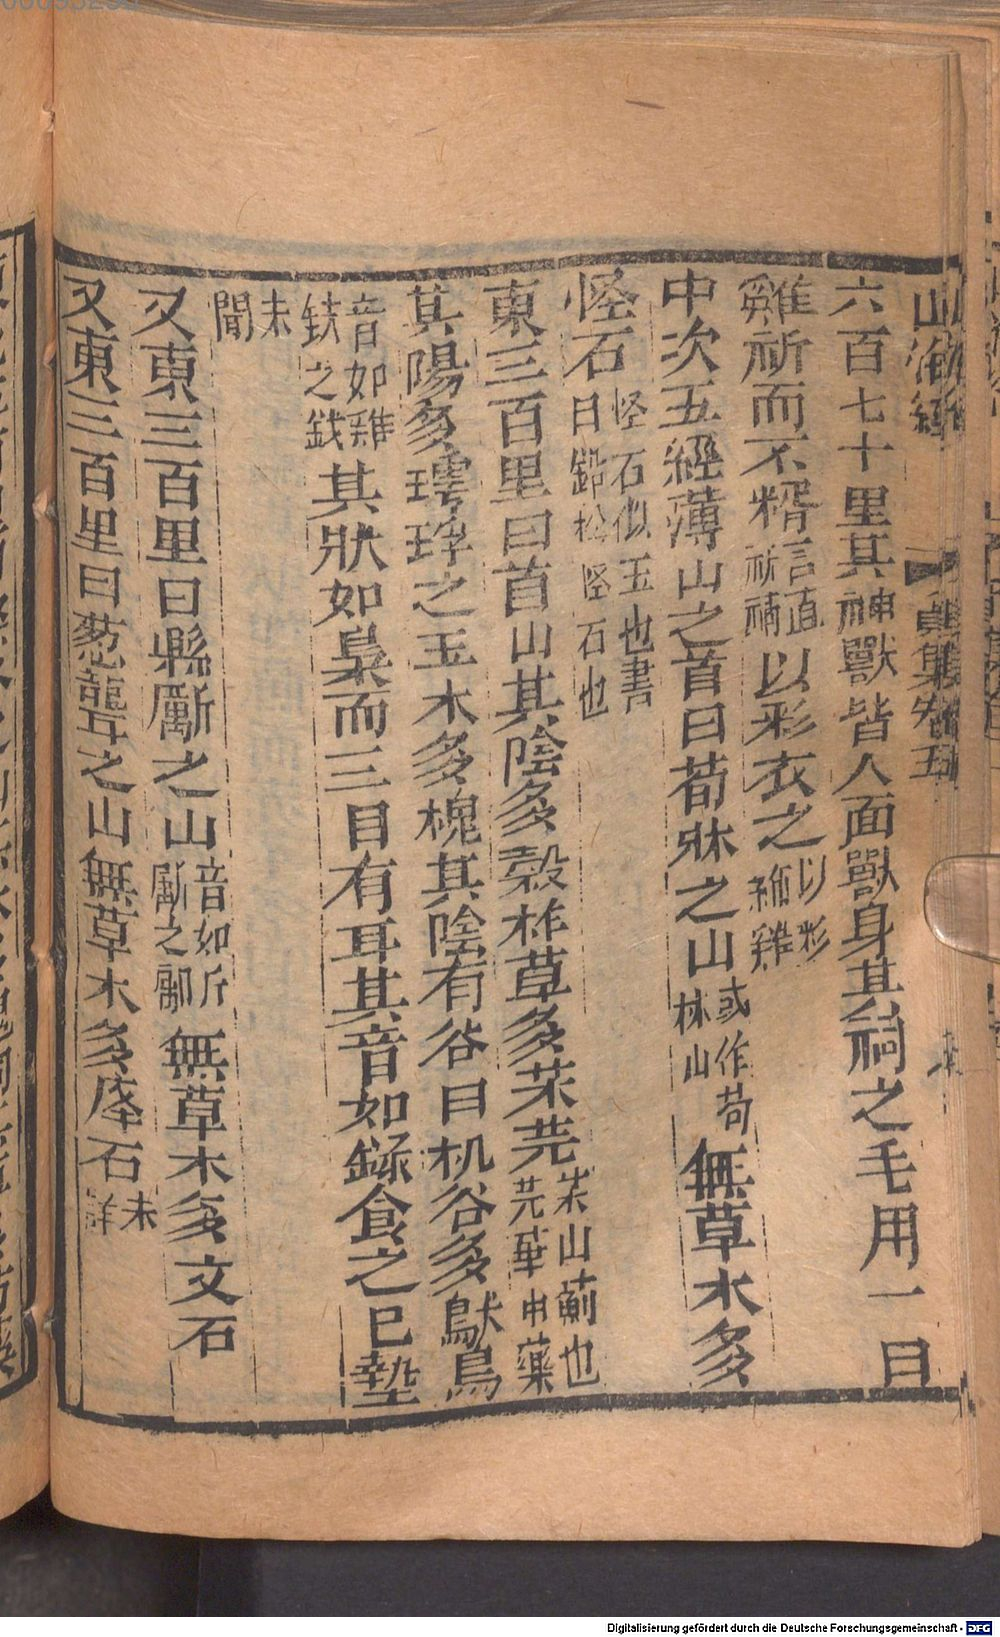 山海經 卷五
六百七十里其神獸皆人面獸身其祠之毛用一目
雞祈而不糈言直祈禱以彩衣之以彩飾雞
中次五經薄山之首曰荀牀之山或作苟林山無草木多
怪石怪石似玉也書曰鉛松怪石也
東三百里曰首山其陰多穀柞草多茱芫茱山薊也芫華中藥
其陽多㻬琈之玉木多槐其陰有谷曰机谷多䳃鳥
音如雞鈇之錢其狀如梟而三目有耳其音如錄食之已墊
未聞
又東三百里曰縣斸之山音如斤斸之斸無草木多文石
又東三百里曰葱聾之山無草木多㾦石未詳
Digitalisierung gefördert durch die Deutsche Forschungsgemeinschaft - DFG